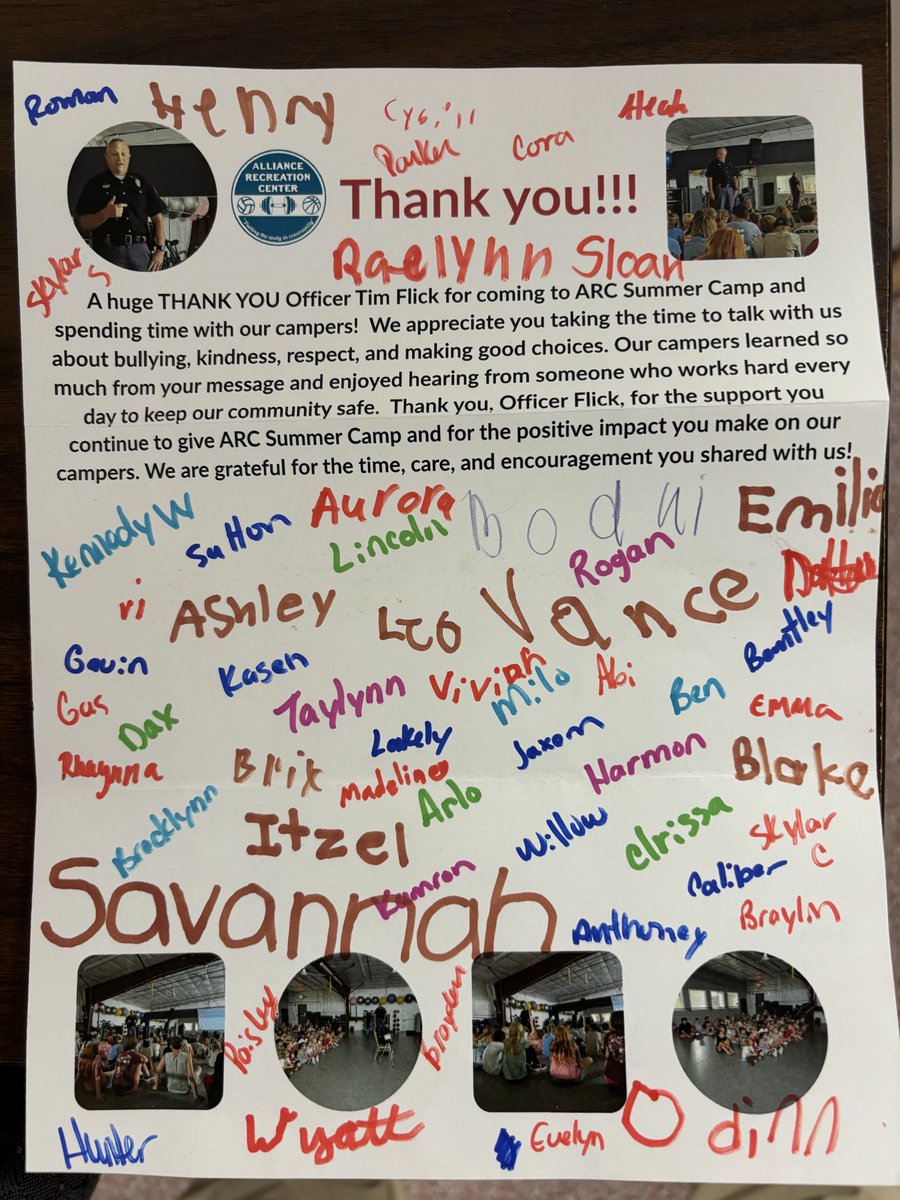 Roman
Henry
Parker
Cora
ALLIANCE
RECREATION
CENTER
"Putting the unity in community"
Thank you!!!
Skylar
S
Raelynn Sloan
A huge THANK YOU Officer Tim Flick for coming to ARC Summer Camp and
spending time with our campers! We appreciate you taking the time to talk with us
about bullying, kindness, respect, and making good choices. Our campers learned so
much from your message and enjoyed hearing from someone who works hard every
day to keep our community safe. Thank you, Officer Flick, for the support you
continue to give ARC Summer Camp and for the positive impact you make on our
campers. We are grateful for the time, care, and encouragement you shared with us!
Kennedy W
Sutton
Aurora
Lincoln
Emilia
Rogan
ri
Ashley
Leo
Vance
Gavin
Kasen
Bentley
Gus
Dax
Taylynn
Vivian
Milo
Abi
Ben
Emma
Rhaynna
Brix
Lakely
Madeline
Jaxom
Harmon
Blake
Brecklynn
Itzel
Arlo
Willow
Clrissa
Skylar
C
Savannah
Kamron
Caliber
Anthoney
Braylin
Paisley
Brayden
Hunter
Wyatt
Evelyn
Odinn